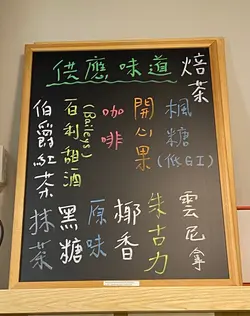 供應味道
焙茶
楓糖
(低GI)
開心果
咖啡
百利甜酒
(Baileys)
伯爵紅茶
雲尼拿
朱古力
椰香
原味
黑糖
抹茶